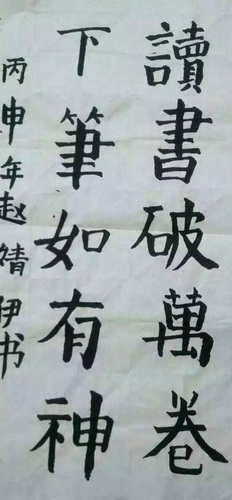 讀書破萬卷
下筆如有神
丙申年赵婧伊书